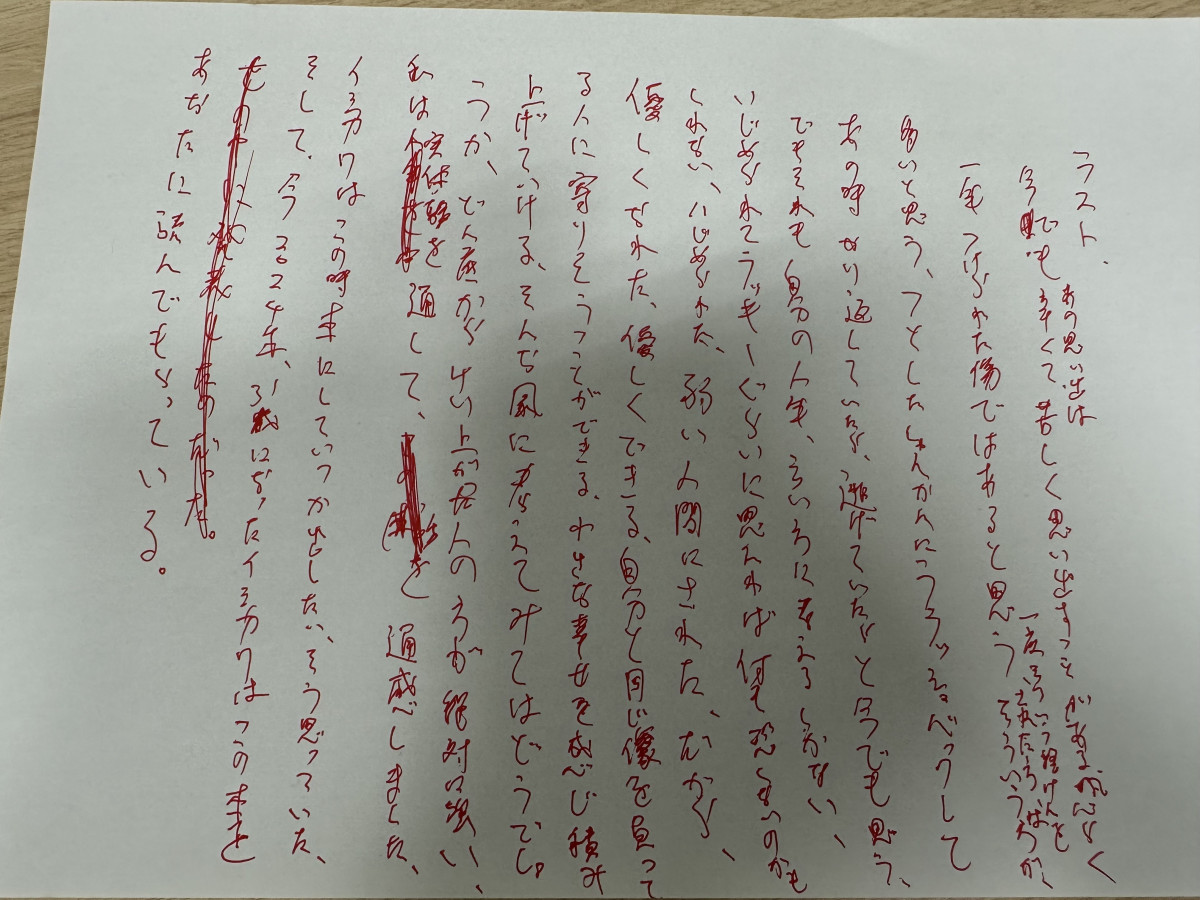 ラスト、
あの思い出は
今でも辛くて苦しく思い出すことがある。恐らく
一度そういう経けんを
されたろ
そういう方が
一生つけられた傷ではあると思う
多いと思う、ふとしたしゅんかんにフラッシュバックして
あの時やり返していたら、逃げていたらと今でも思う、
でもそれも自分の人生、そういうふうに考えるしかない、
いじめられてラッキーぐらいに思えれば何も恐くないのかも
しれない、いじめられた、弱い人間にされた、だから、
優しくなれた、優しくできる、自分と同じ傷を負って
る人に寄りそうことができる、小さな幸せを感じ積み
上げていける、そんな風に考えてみてはどうでし。
つか、どん底からはい上がる人の方が絶対に強い、
私は実体験を通して、を通感しました、
イシカワはこの時本にしていつか出したい、そう思っていた、
そして、今2024年、31歳になったイシカワはこの本を
あなたに読んでもらっている。